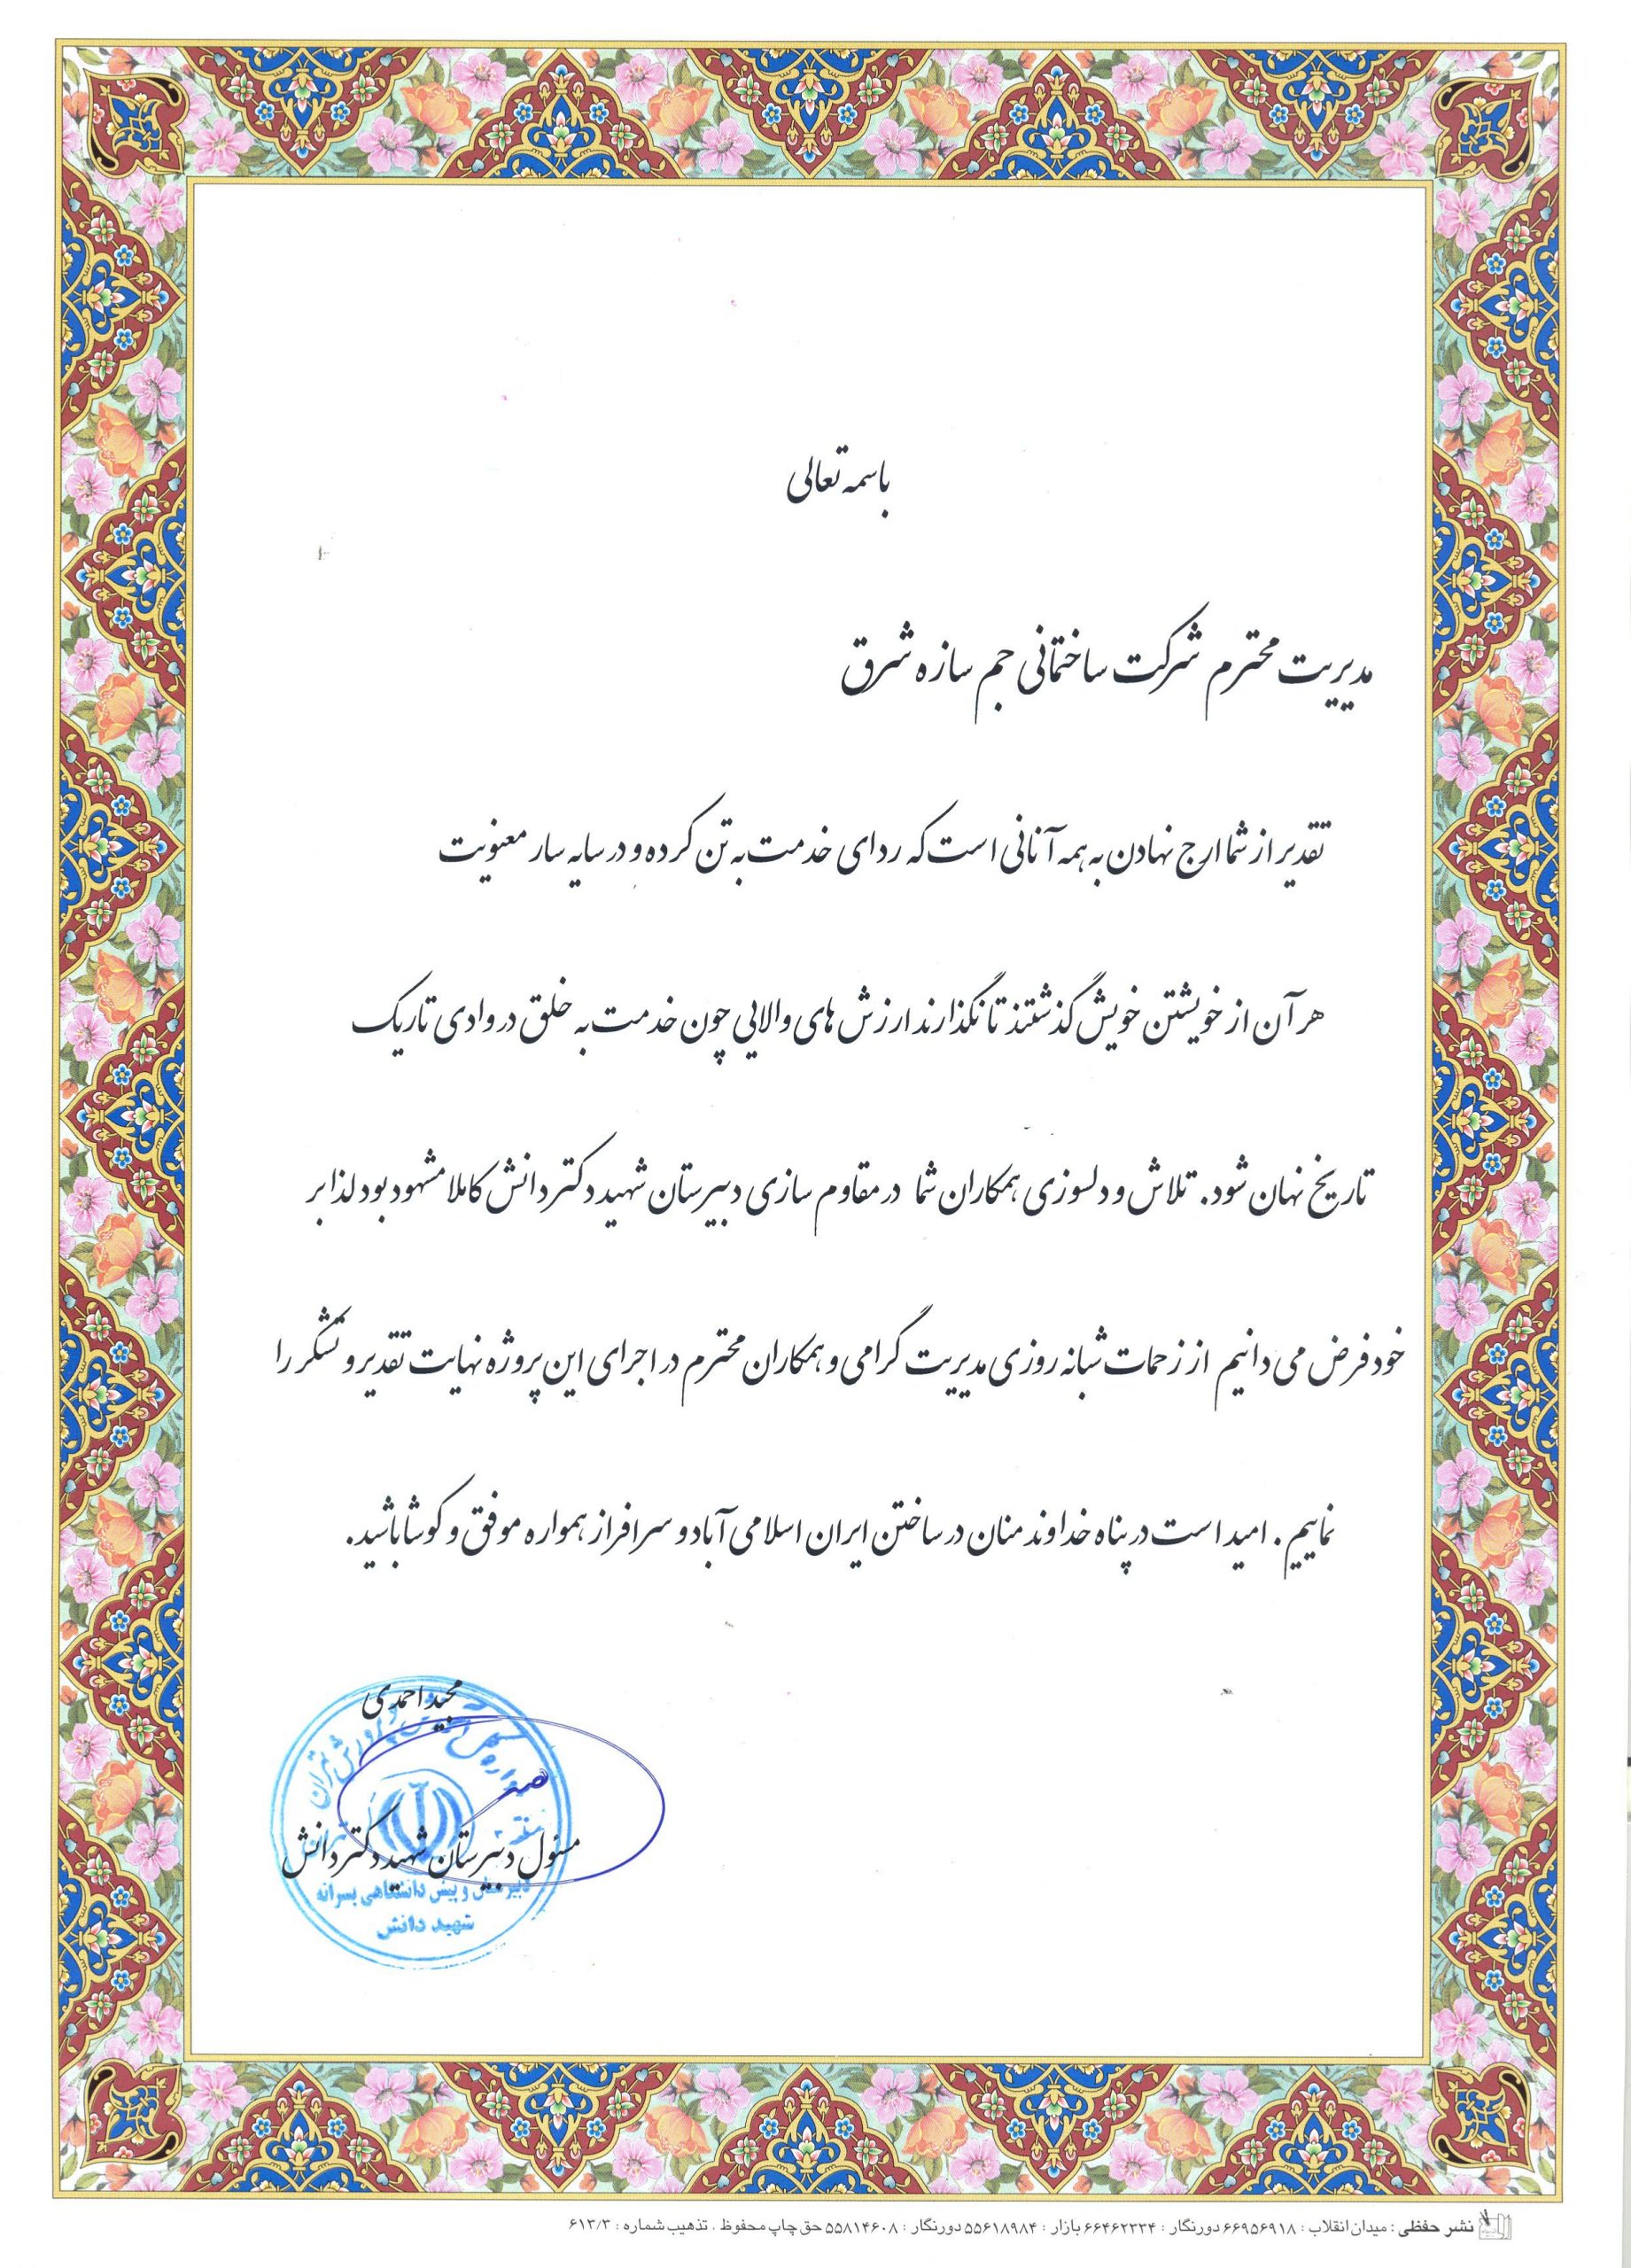 باسمه تعالی
مدیریت محترم شرکت ساختمانی جم سازه شرق
تقدیر از شما ارج نهادن به همه آنانی است که ردای خدمت به تن کرده و در سایه سار معنویت
هر آن از خویشتن خویش گذشتند تا نگذارند ارزش های والایی چون خدمت به خلق در وادی تاریک
تاریخ نهان شود. تلاش و دلسوزی همکاران شما در مقاوم سازی دبیرستان شهید دکتر دانش کاملا مشهود بود لذا بر
خود فرض می دانیم از زحمات شبانه روزی مدیریت گرامی و همکاران محترم در اجرای این پروژه نهایت تقدیر و تشکر را
نماییم. امید است در پناه خداوند منان در ساختن ایران اسلامی آباد و سرافراز همواره موفق و کوشا باشید.
مجید احمدی
مسئول دبیرستان شهید دکتر دانش
دبیرستان و پیش دانشگاهی پسرانه
شهید دانش
نشر حفظی : میدان انقلاب : ۶۶۹۵۶۹۱۸ دورنگار : ۶۶۴۶۲۳۳۴ بازار : ۵۵۶۱۸۹۸۴ دورنگار : ۵۵۸۱۴۶۰۸ حق چاپ محفوظ . تذهیب شماره : ۶۱۳/۳